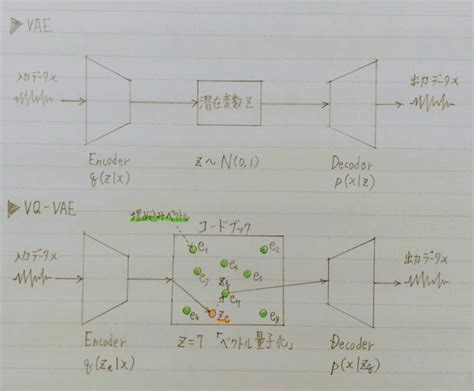 ▶ VAE
入力データx
潜在変数 Z
出力データx
Encoder
q(z|x)
z ~ N(0,1)
Decoder
p(x|z)
▶ VQ-VAE
埋め込みベクトル
コードブック
入力データx
出力データx
e1
e2
e3
e4
e5
zq
e7
e6
ze
e8
Encoder
q(ze|x)
z = 7 「ベクトル量子化」
Decoder
p(x|zq)